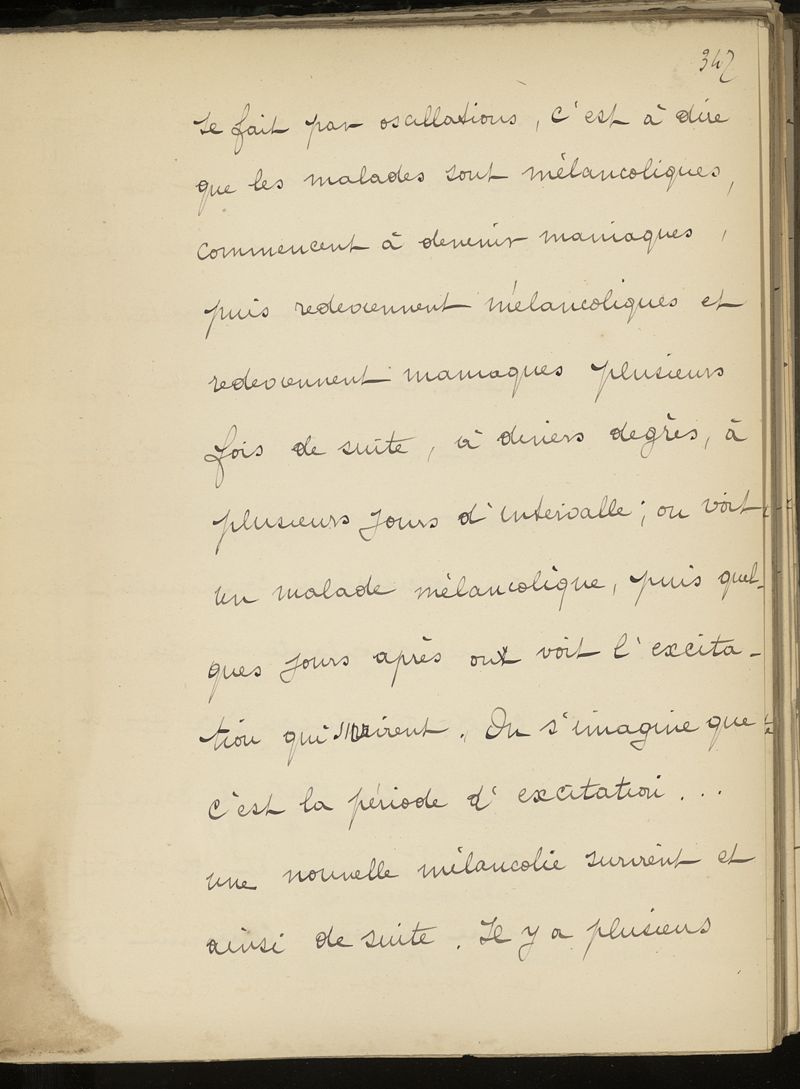 347
se fait par oscillations, c'est à dire
que les malades sont mélancoliques,
commencent à devenir maniaques,
puis redeviennent mélancoliques et
redeviennent maniaques plusieurs
fois de suite, à divers degrès, à
plusieurs jours d'intervalle; on voit
un malade mélancolique, puis quel-
ques jours après on voit l'excita-
tion qui survient. On s'imagine que
c'est la période d'excitation...
une nouvelle mélancolie survient et
ainsi de suite. Il y a plusieurs